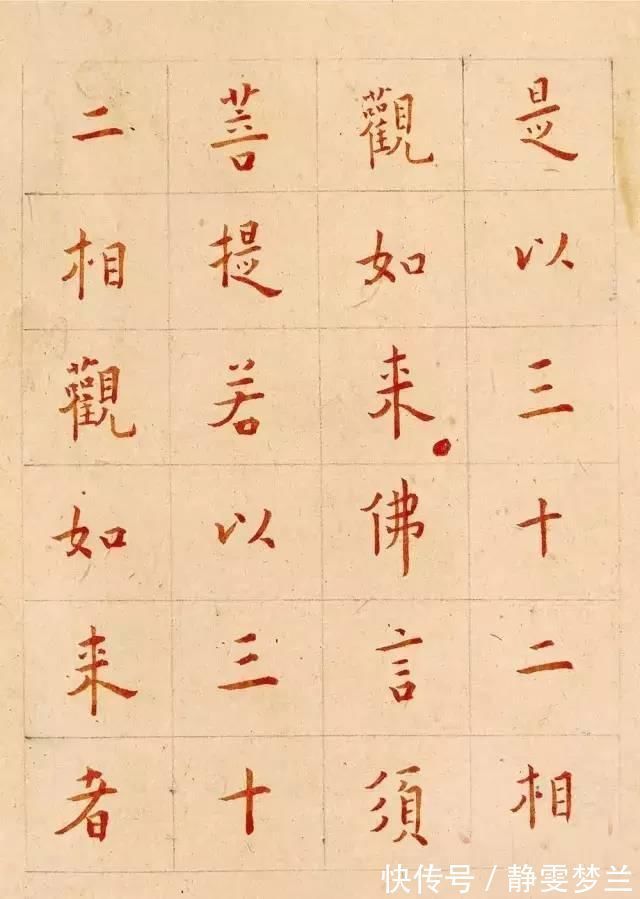 是以三十二相
觀如来佛言須
菩提若以三十
二相觀如来者
快传号／静雯梦兰